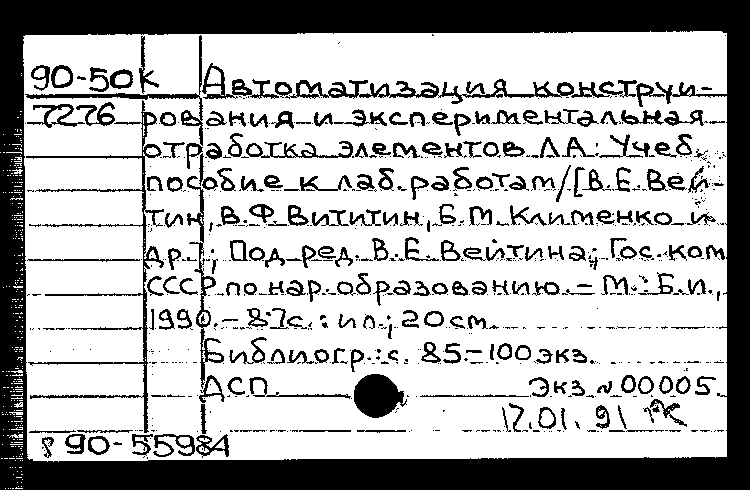 90-50к Автоматизация конструи-
7276 рования и экспериментальная
отработка элементов ЛА: Учеб.
пособие к лаб. работам/[В.Е.Вей-
тин, В.Ф.Вититин, Б.М.Клименко и
др.]; Под ред. В.Е.Вейтина; Гос.ком
СССР по нар. образованию. – М.: Б.и.,
1990. – 87с.: ил.; 20см.
Библиогр.: с. 85. – 100экз.
ДСП. Экз №00005.
17.01.91
90-55984